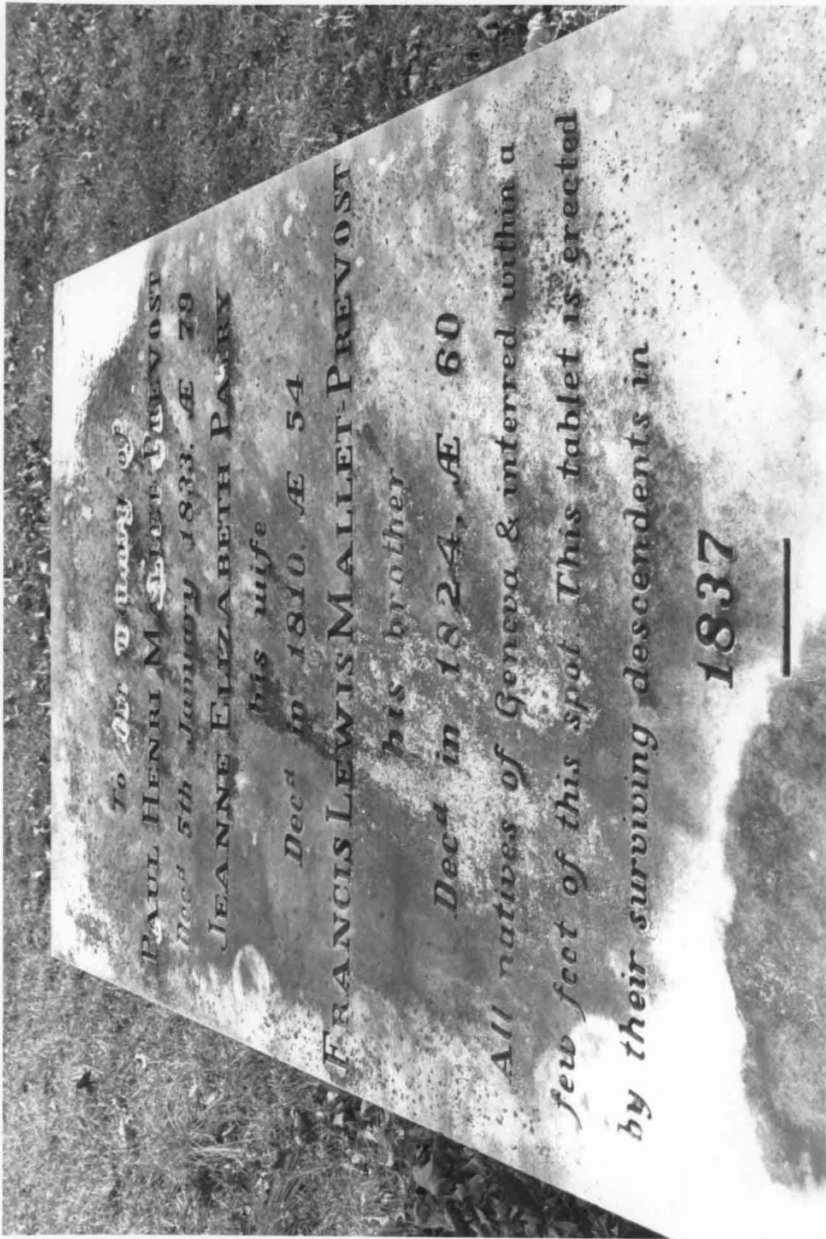 To the memory of
PAUL HENRI MALLET-PREVOST
Decd 5th January 1833. Æ 79
JEANNE ELIZABETH PATRY
his wife
Decd in 1810. Æ 54
FRANCIS LEWIS MALLET-PREVOST
his brother
Decd in 1824, Æ. 60
All natives of Geneva & interred within a
few feet of this spot This tablet is erected
by their surviving descendents in
1837